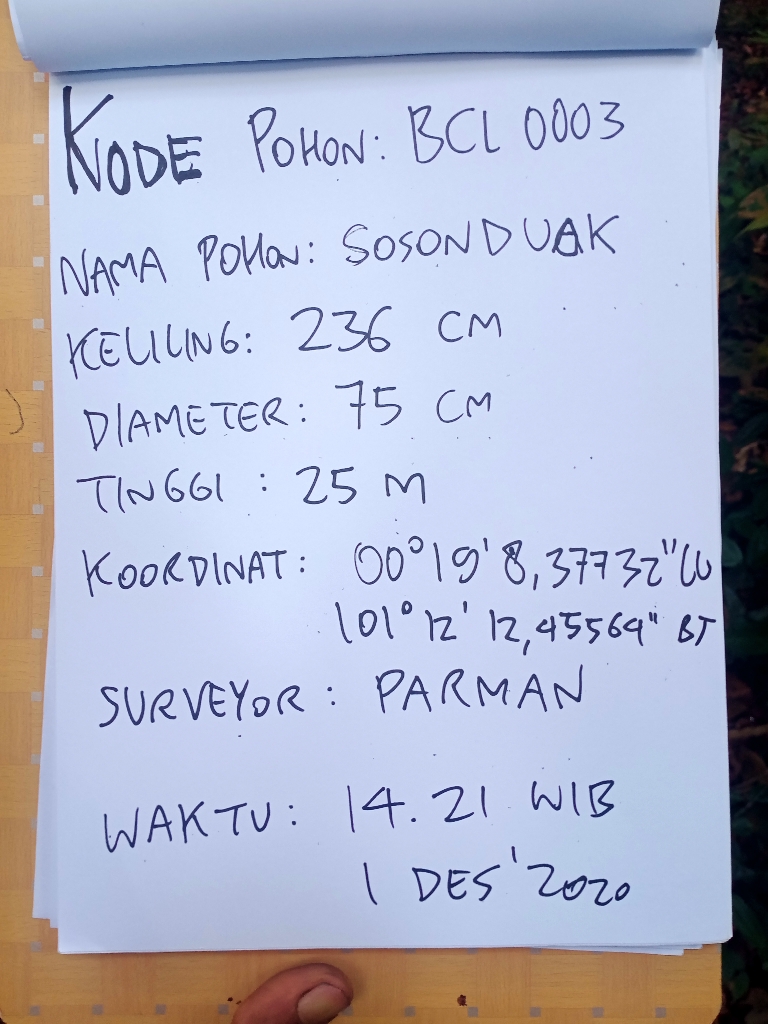 KODE POHON: BCL 0003
NAMA POHON: SOSONDUAK
KELILING: 236 CM
DIAMETER: 75 CM
TINGGI : 25 M
KOORDINAT: 00°19'8,37732" LU
101°12'12,45564" BT
SURVEYOR : PARMAN
WAKTU: 14.21 WIB
1 DES'2020